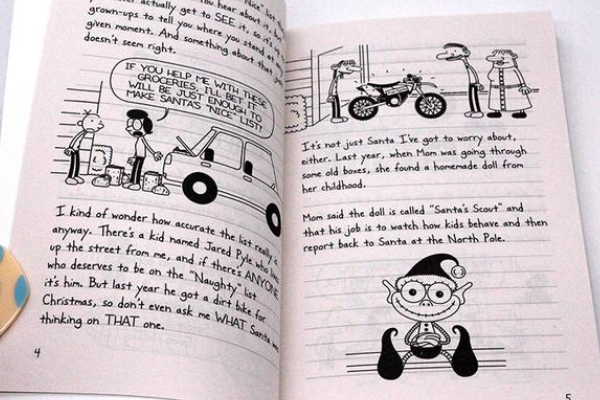 "Nice" list
actually get to SEE it, so it's
grown-ups to tell you where you stand at
given moment. And something about that
doesn't seem right.
IF YOU HELP ME WITH THESE
GROCERIES, I'LL BET IT
WILL BE JUST ENOUGH TO
MAKE SANTA'S "NICE" LIST!
I kind of wonder how accurate the list really is
anyway. There's a kid named Jared Pyle who
up the street from me, and if there's ANYONE
who deserves to be on the "Naughty" list
it's him. But last year he got a dirt bike for
Christmas, so don't even ask me WHAT Santa was
thinking on THAT one.
4
It's not just Santa I've got to worry about,
either. Last year, when Mom was going through
some old boxes, she found a homemade doll from
her childhood.
Mom said the doll is called "Santa's Scout" and
that his job is to watch how kids behave and then
report back to Santa at the North Pole.
5